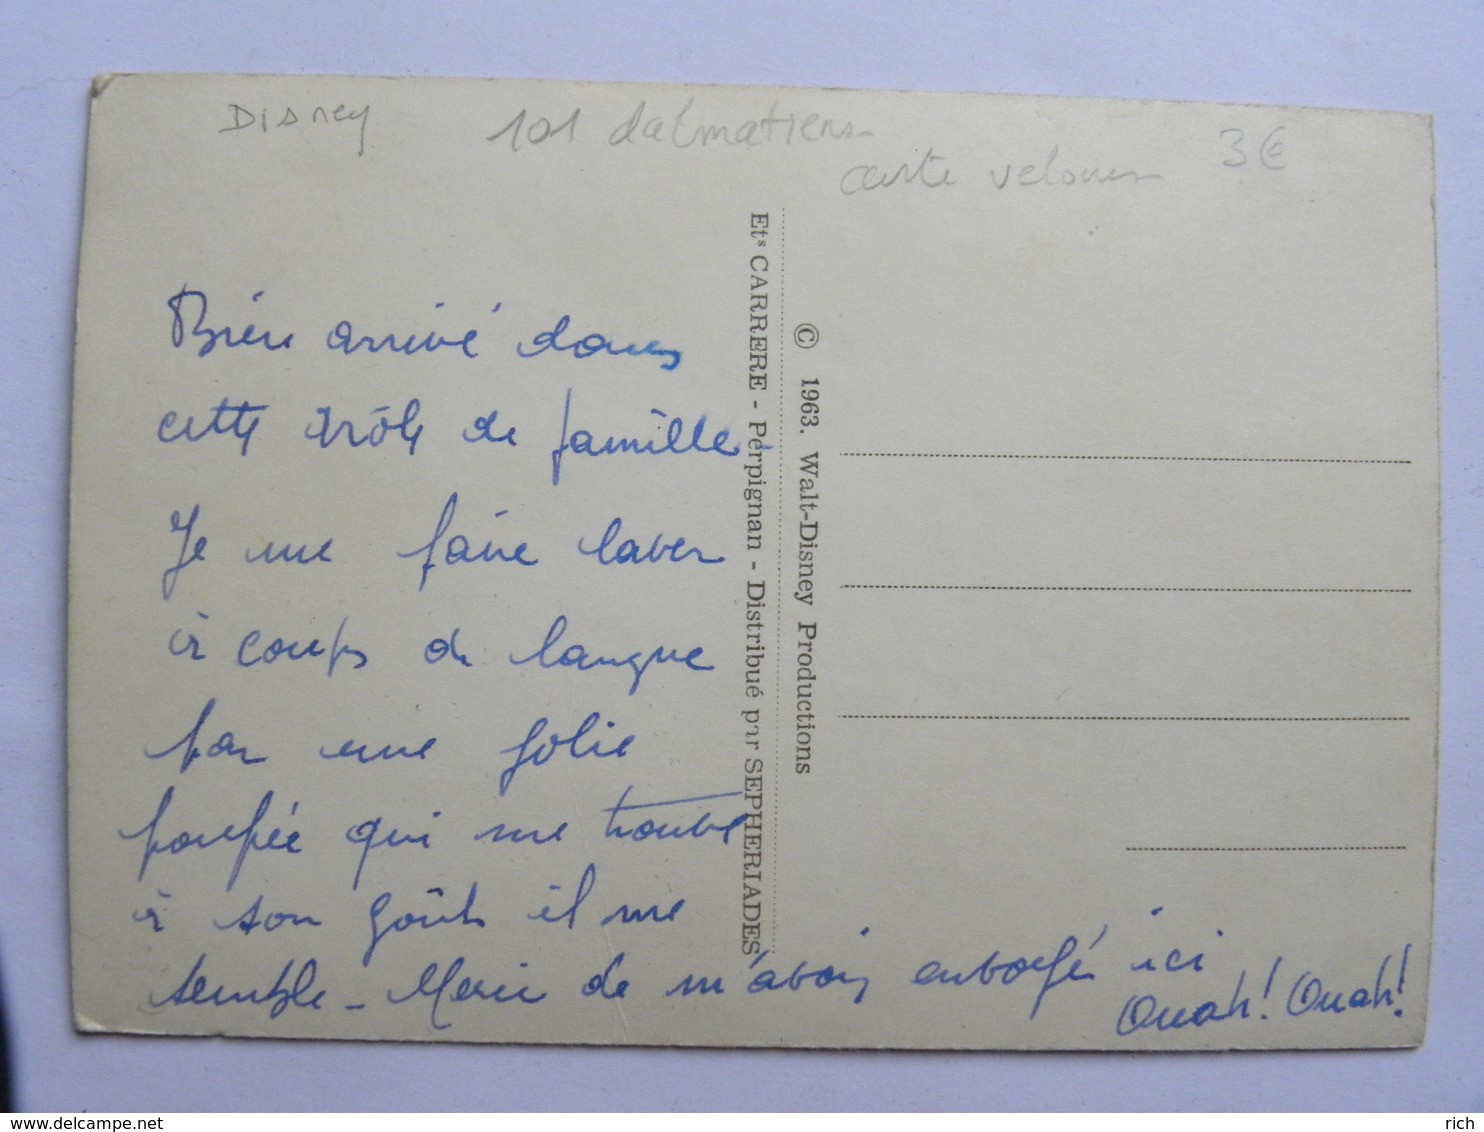 Disney
101 dalmatiens
carte velours
3€
Bien arrivé dans
cette drôle de famille
Je me faire laver
à coups de langue
par une jolie
poupée qui me trouve
à son goût il me
semble - Merci de m'avoir envoyé ici
Ouah! Ouah!
Ets CARRERE - Perpignan - Distribué par SEPHERIADES
© 1963. Walt-Disney Productions
https://www.delcampe.net
rich